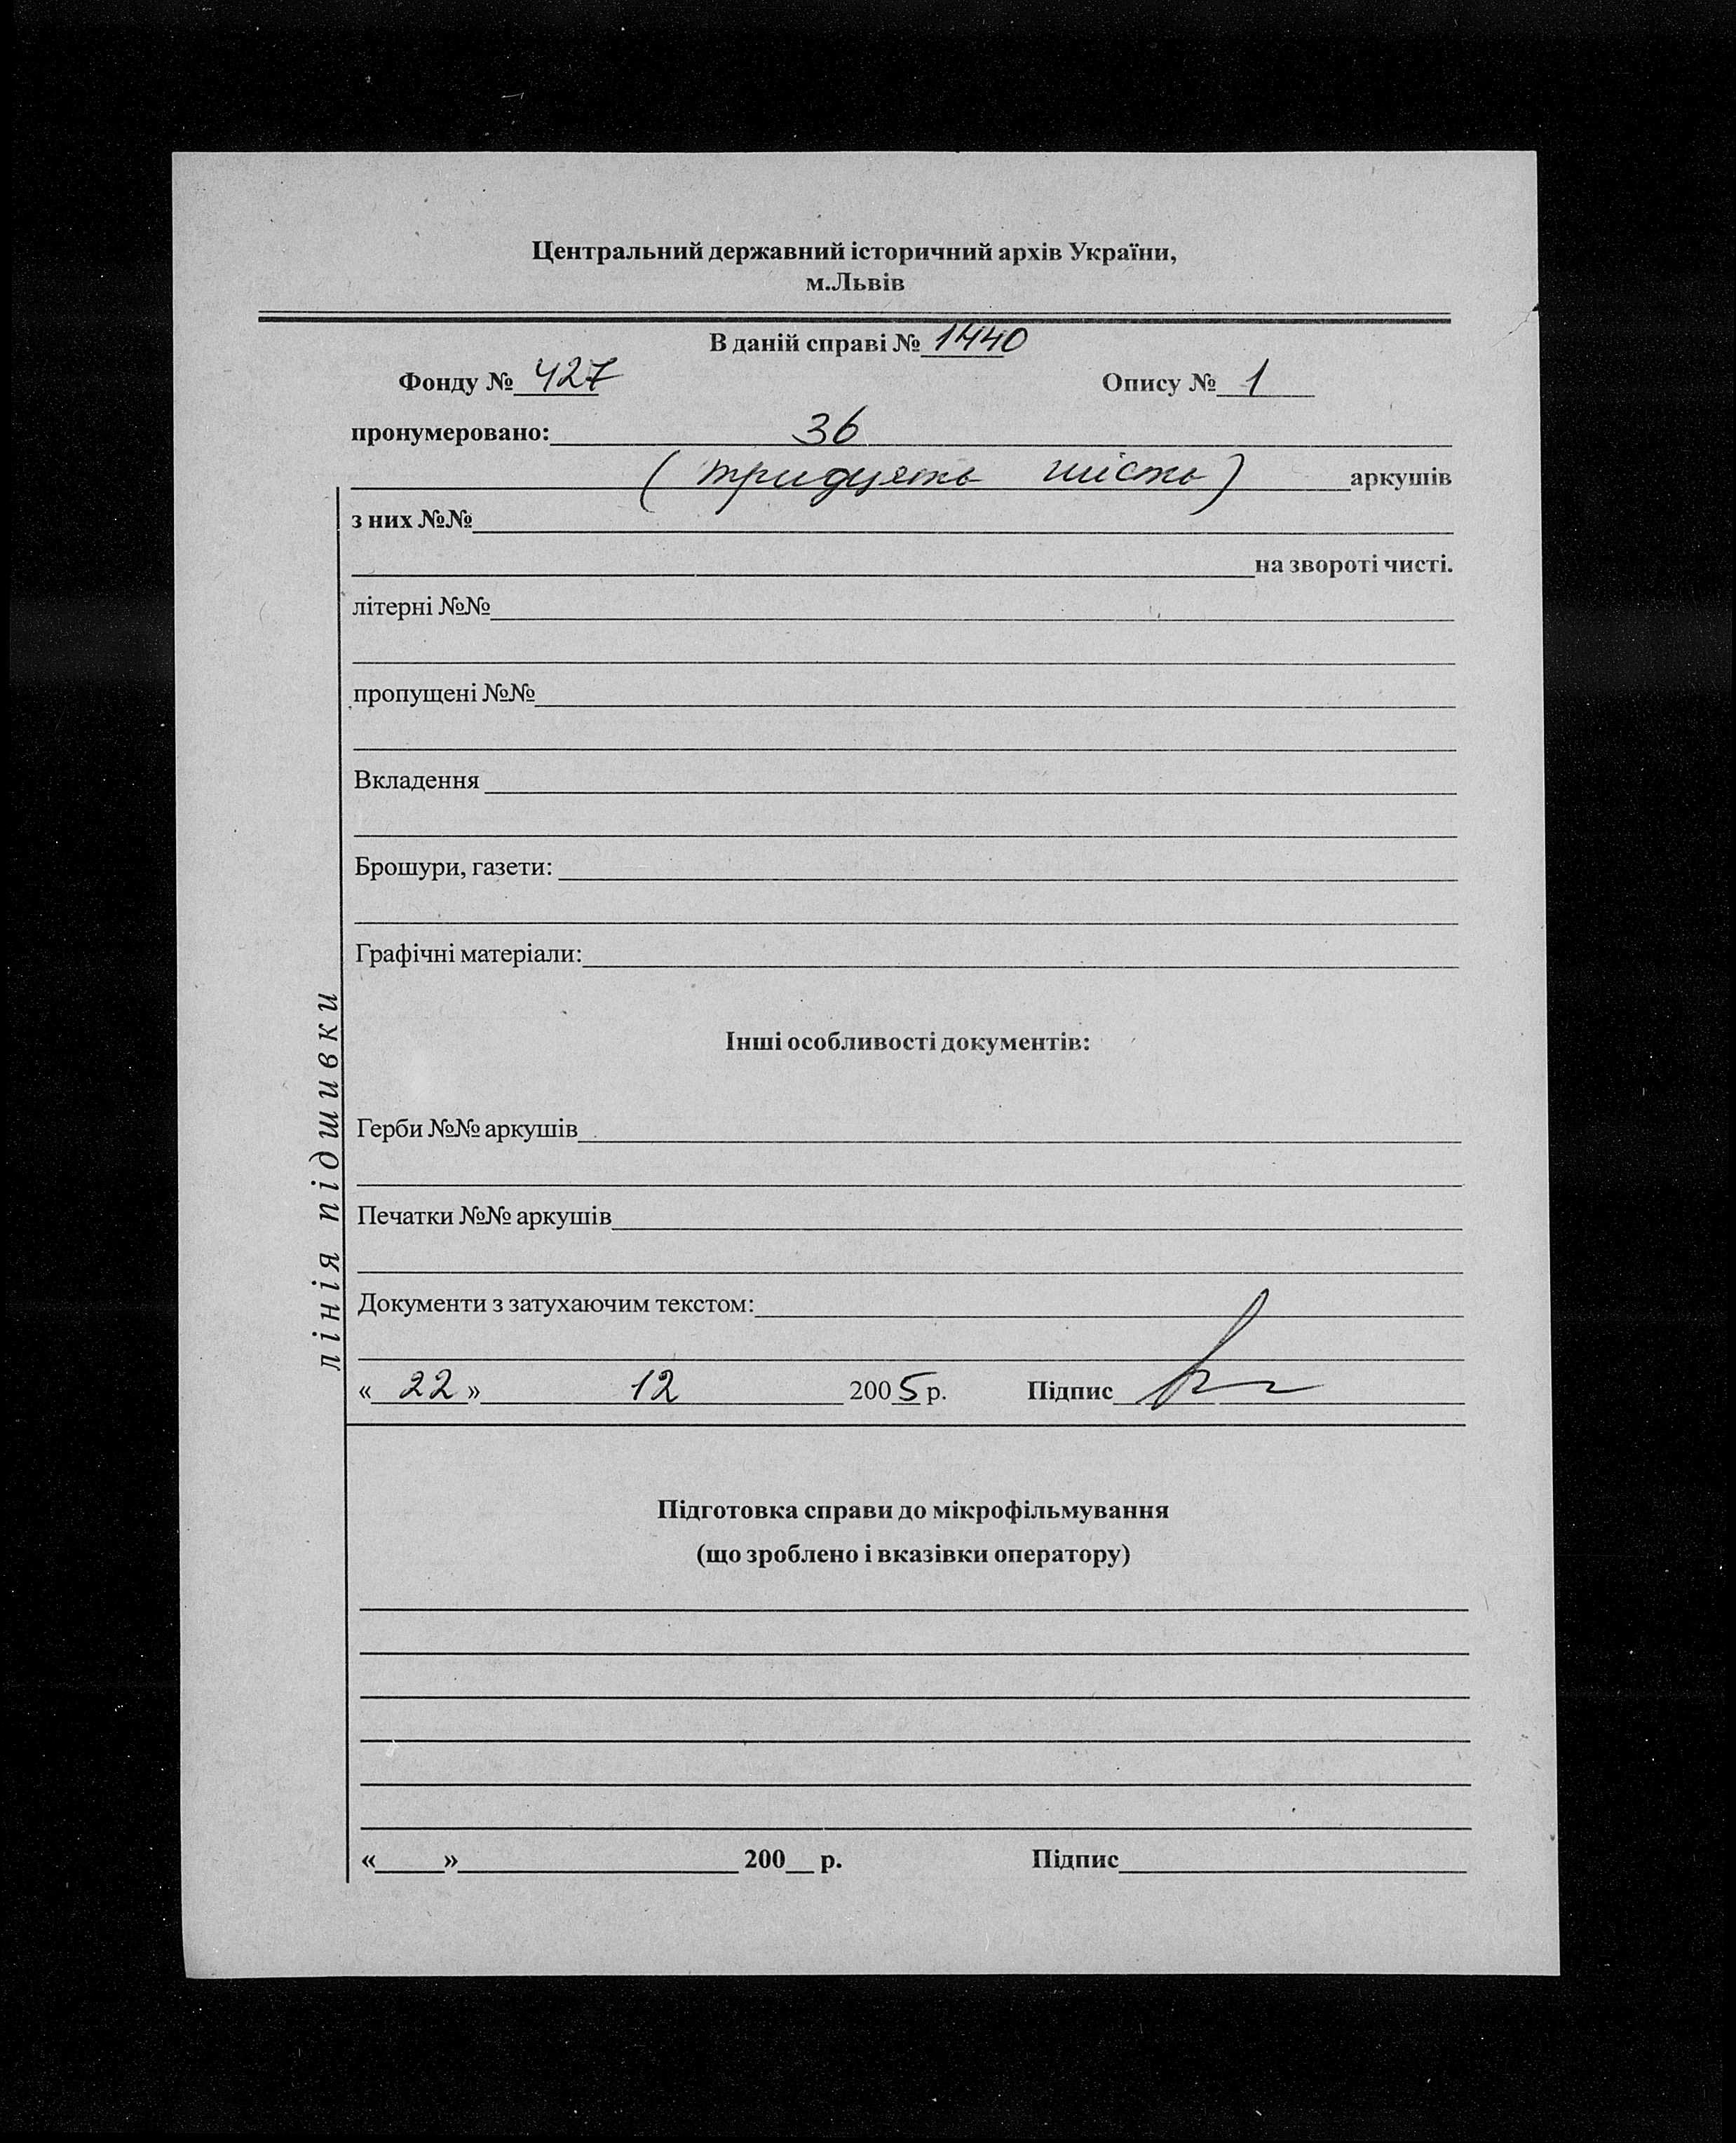 Центральний державний історичний архів України,
м.Львів
В даній справі № 1440
Фонду № 427 Опису № 1
пронумеровано: 36
( тридцять шість ) аркушів
з них №№
на звороті чисті.
літерні №№
пропущені №№
Вкладення
Брошури, газети:
Графічні матеріали:
Інші особливості документів:
Герби №№ аркушів
Печатки №№ аркушів
Документи з затухаючим текстом:
« 22 » 12 2005 р. Підпис
Підготовка справи до мікрофільмування
(що зроблено і вказівки оператору)
« » 200 р. Підпис
лінія підшивки